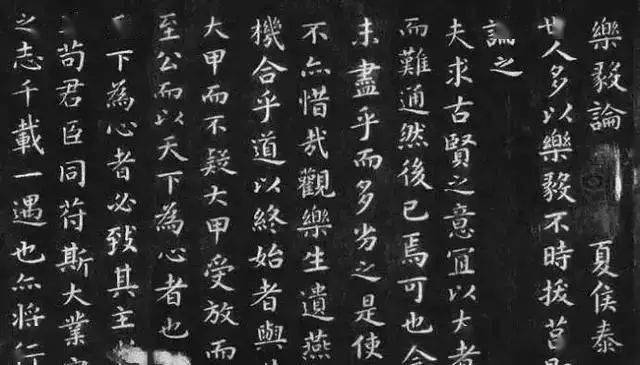 樂毅論 夏侯泰
世人多以樂毅不時拔莒
論之
夫求古賢之意宜以大者
而難通然後已焉可也今
未盡乎而多劣之是使
不亦惜哉觀樂生遺燕
機合乎道以終始者與
大甲而不疑大甲受放而
至公而以天下為心者也
下為心者必致其主
苟君臣同苻斯大業
之志千載一遇也亦將行